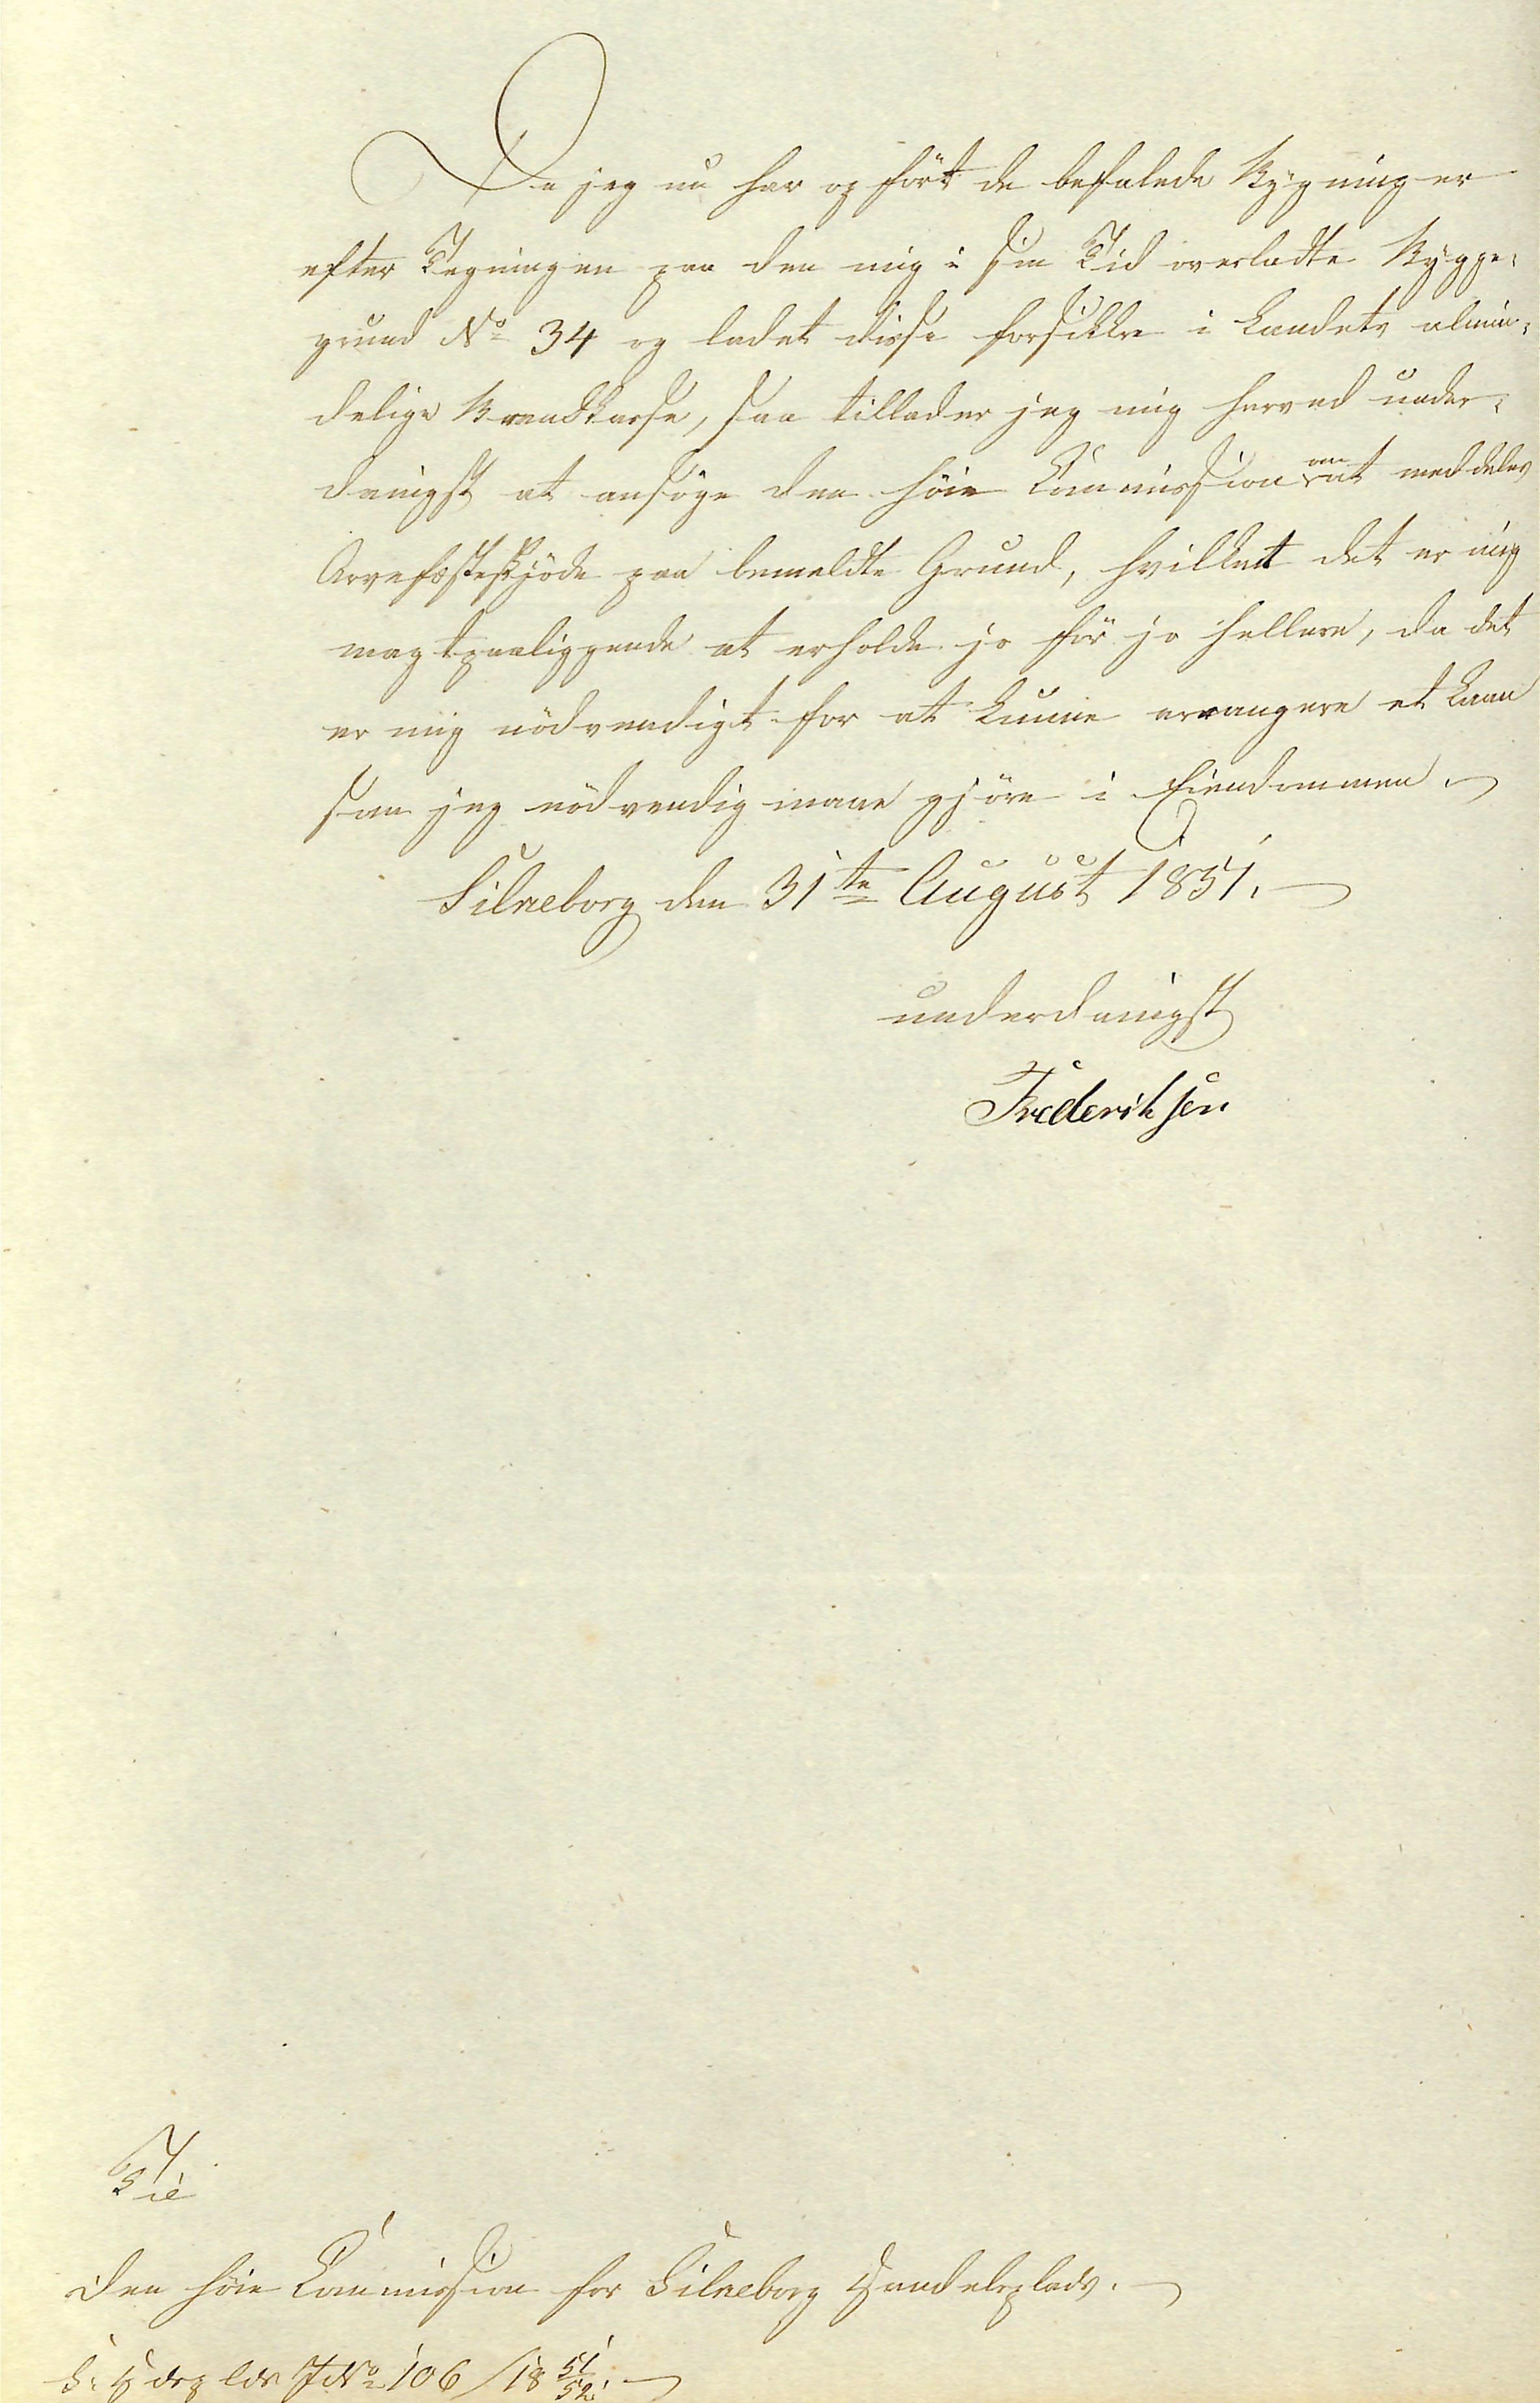 Da jeg nu har opført de befalede Bygninger
efter Tegningen paa den mig i sin Tid overladte Bygge¬
grund No 34 og ladet disse forsikkre i Landets almin¬
delige Brandkasse, saa tillader jeg mig herved under¬
danigst at ansöge den höie Commission om at meddeles
Arvefæsteskjöde paa bemeldte Grund, hvilket det er mig
magtpaaliggende at erholde jo för jo hellere, da det
er mig nödvendigt for at kunne arrangere et Laan
som jeg nödvendig maae gjöre i Eiendommen.
Silkeborg den 31te August 1851.
underdanigst
Frederiksen
Til
den höie Commission for Silkeborg Handelsplads.
S. Hdsplds J No 106/18 51/52.